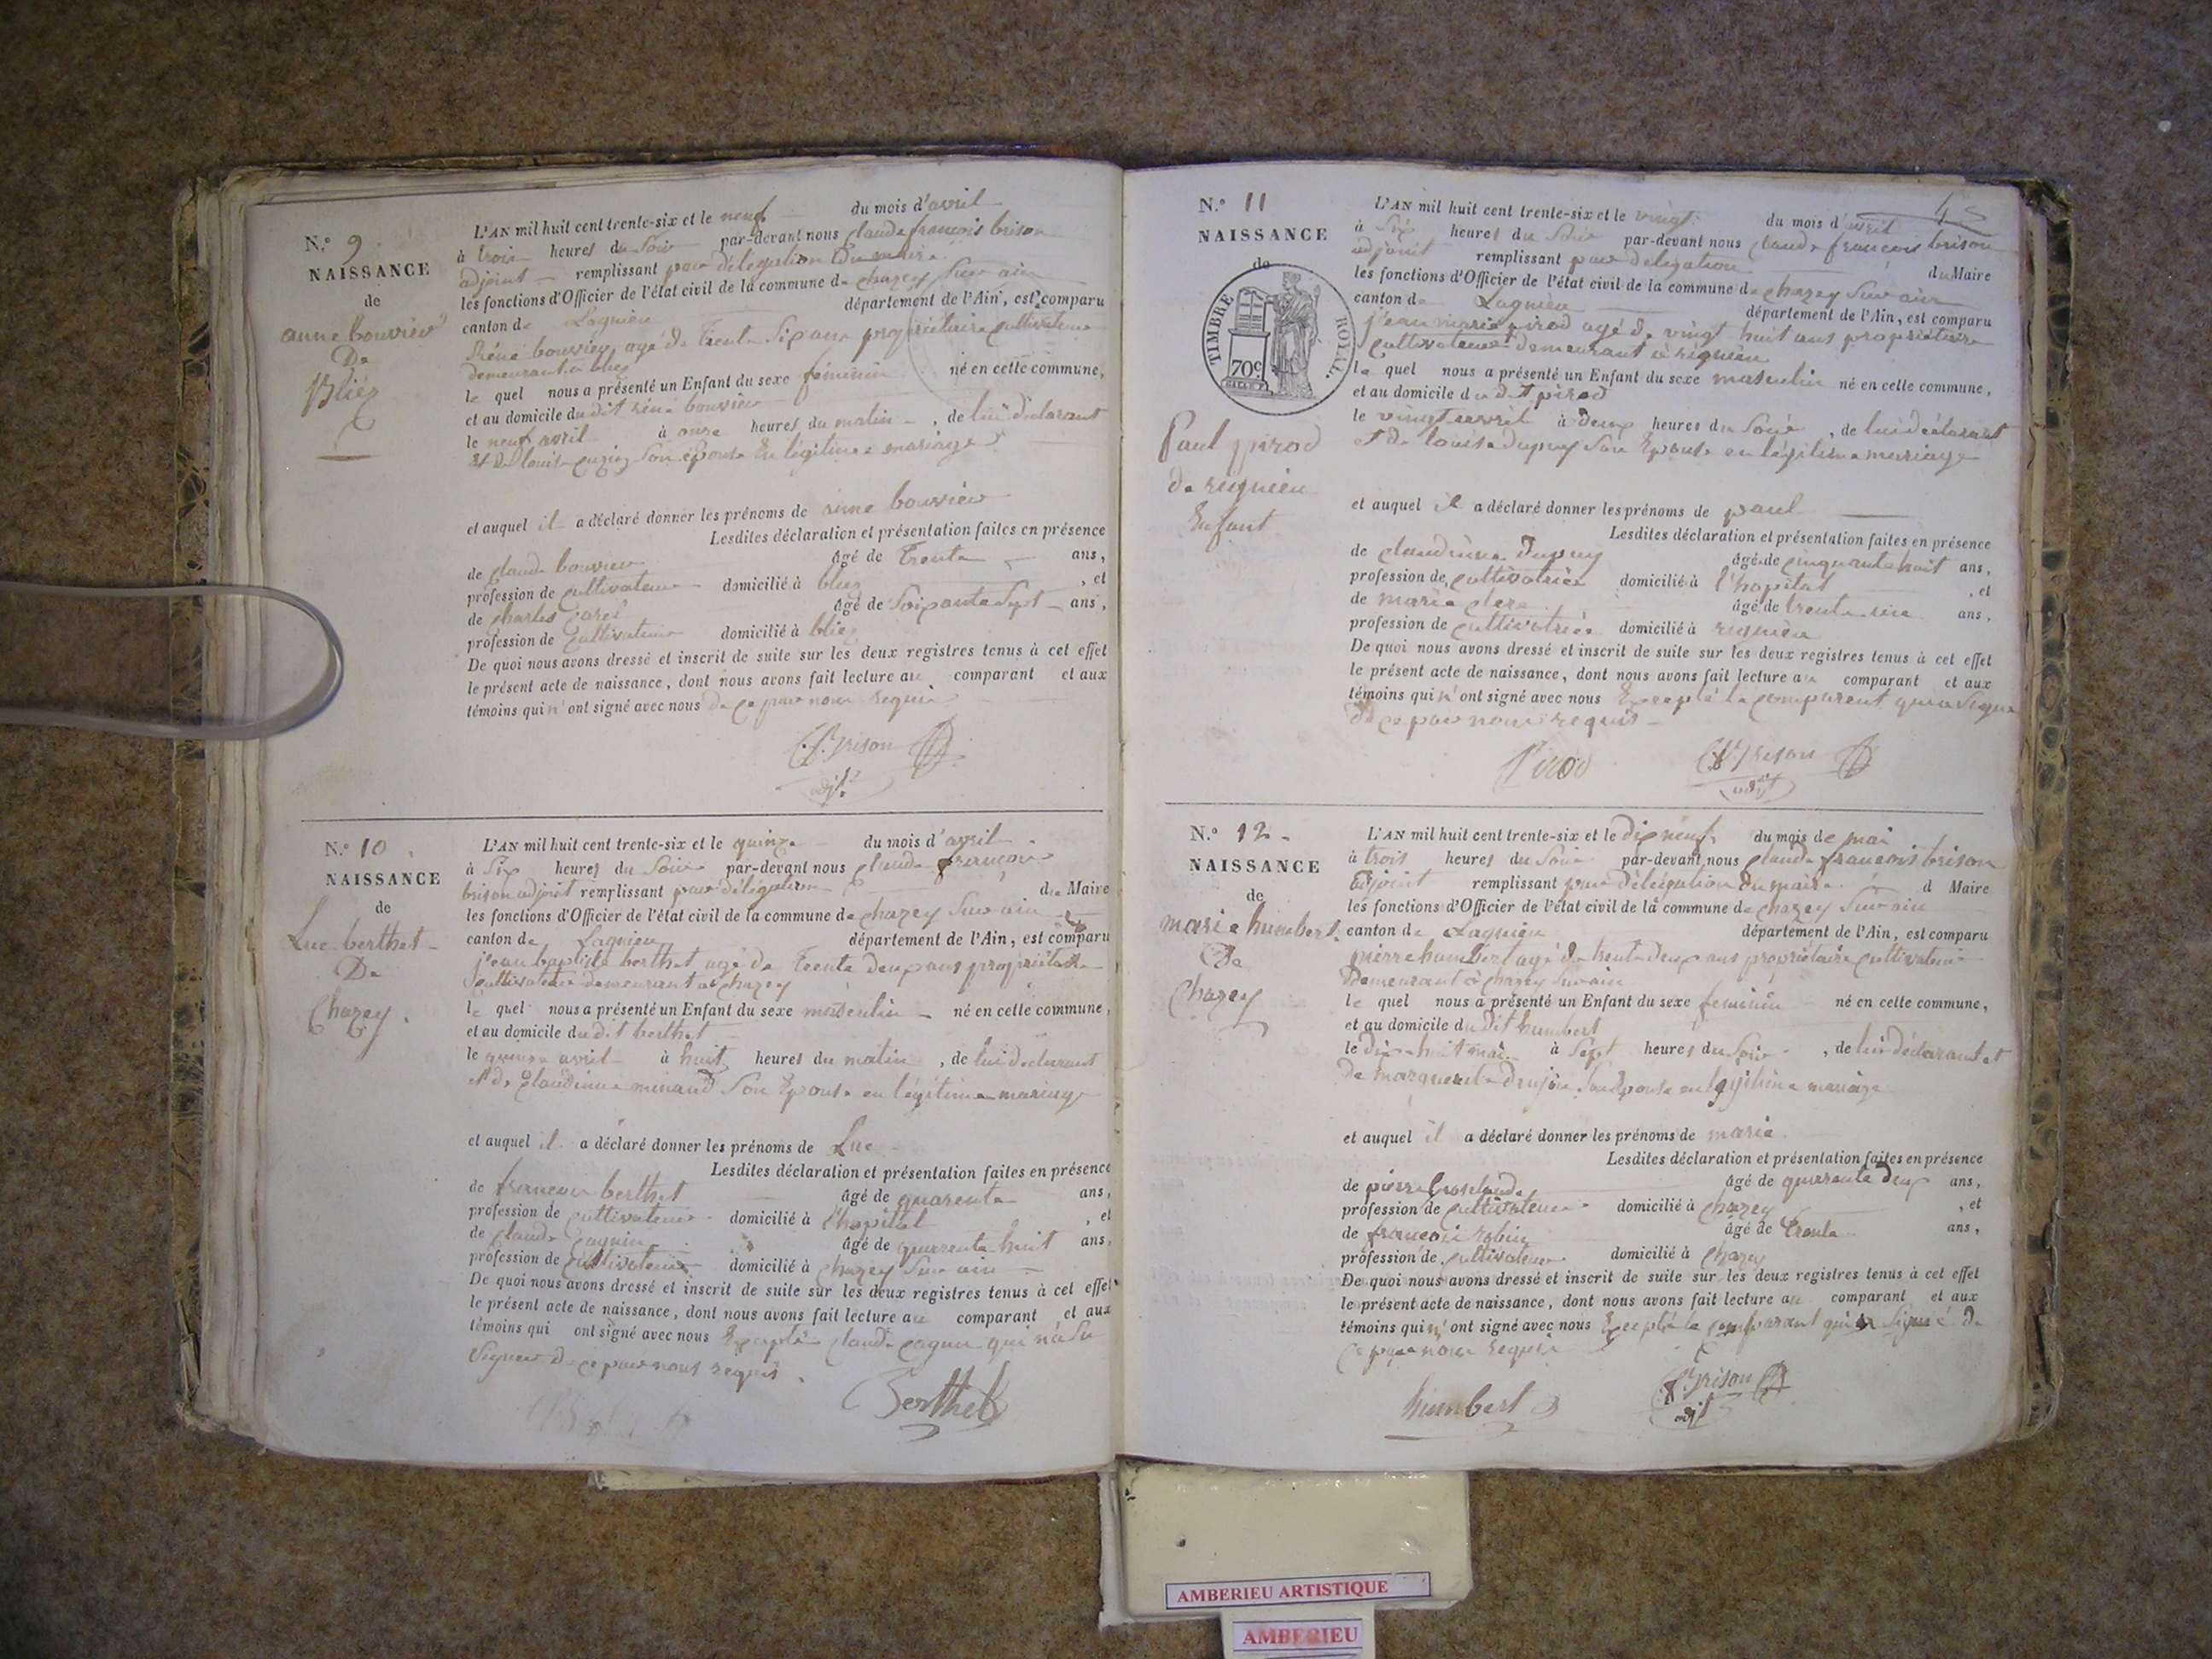 N.º 9
NAISSANCE
de
anne bouvier
De
Bliez
L'AN mil huit cent trente-six et le neuf du mois d'avril
à trois heures du Soir par-devant nous claude francois brison
adjoint remplissant par délégation Du maire
les fonctions d'Officier de l'état civil de la commune de chazey Sur ain
canton de Lagnieu département de l'Ain, est comparu
Réné bouvier agé de trente Six ans propriétaire cultivateur
demeurant à bliez
le quel nous a présenté un Enfant du sexe féminin né en cette commune,
et au domicile du dit réné bouvier
le neuf avril à onze heures du matin, de lui déclarant
et de louise Son épouse En légitime mariage
et auquel il a déclaré donner les prénoms de anne bouvier
Lesdites déclaration et présentation faites en présence
de claude bouvier âgé de trente ans,
profession de cultivateur domicilié à bliez, et
de charles âgé de Soixante Sept ans,
profession de cultivateur domicilié à bliez
De quoi nous avons dressé et inscrit de suite sur les deux registres tenus à cet effet
le présent acte de naissance, dont nous avons fait lecture au comparant et aux
témoins qui n'ont signé avec nous de ce par nous requis
Brison
adjt
N.º 10
NAISSANCE
de
Luc berthet
De
Chazey.
L'AN mil huit cent trente-six et le quinze du mois d'avril
à Six heures du Soir par-devant nous claude francois
brison adjoint remplissant par délégation du Maire
les fonctions d'Officier de l'état civil de la commune de chazey Sur ain
canton de Lagnieu département de l'Ain, est comparu
jean baptiste berthet agé de trente deux ans propriétaire
cultivateur demeurant à chazey
le quel nous a présenté un Enfant du sexe masculin né en cette commune,
et au domicile du dit berthet
le quinze avril à huit heures du matin, de lui déclarant
et de claudine minand Son Epouse en légitime mariage
et auquel il a déclaré donner les prénoms de Luc
Lesdites déclaration et présentation faites en présence
de francois berthet âgé de quarente ans,
profession de cultivateur domicilié à l'hopital, et
de claude âgé de quarente huit ans,
profession de cultivateur domicilié à chazey Sur ain
De quoi nous avons dressé et inscrit de suite sur les deux registres tenus à cet effet
le présent acte de naissance, dont nous avons fait lecture au comparant et aux
témoins qui ont signé avec nous Excepté claude qui n'a Su
Signer de ce par nous requis.
Berthet
N.º 11
NAISSANCE
de
TIMBRE ROYAL.
70c
Paul pirod
de rignieu
Enfant
L'AN mil huit cent trente-six et le vingt du mois d'avril
à Six heures du Soir par-devant nous claude francois brison
adjoint remplissant par délégation du Maire
les fonctions d'Officier de l'état civil de la commune de chazey Sur ain
canton de Lagnieu département de l'Ain, est comparu
jean marie pirod agé de vingt huit ans propriétaire
cultivateur demeurant à rignieu
le quel nous a présenté un Enfant du sexe masculin né en cette commune,
et au domicile du dit pirod
le vingt avril à deux heures du Soir, de lui déclarant
et de louise dupuy Son Epouse en légitime mariage
et auquel il a déclaré donner les prénoms de paul
Lesdites déclaration et présentation faites en présence
de claudine dupuy âgé de cinquante huit ans,
profession de cultivatrice domicilié à l'hopital, et
de marie âgé de trente ans,
profession de cultivatrice domicilié à rignieu
De quoi nous avons dressé et inscrit de suite sur les deux registres tenus à cet effet
le présent acte de naissance, dont nous avons fait lecture au comparant et aux
témoins qui n'ont signé avec nous Excepté le comparent qui a Signé
de ce par nous requis
Pirod Brison
adjt
N.º 12
NAISSANCE
de
marie humbert
De
Chazey
L'AN mil huit cent trente-six et le dix neuf du mois de mai
à trois heures du Soir par-devant nous claude francois brison
adjoint remplissant par délégation du maire d Maire
les fonctions d'Officier de l'état civil de la commune de chazey Sur ain
canton de Lagnieu département de l'Ain, est comparu
pierre humbert agé de trente deux ans propriétaire cultivateur
Demeurant à chazey Sur ain
le quel nous a présenté un Enfant du sexe feminin né en cette commune,
et au domicile du dit humbert
le dix huit mai à Sept heures du Soir, de lui déclarant et
de marguerite Son Epouse en légitime mariage
et auquel il a déclaré donner les prénoms de marie
Lesdites déclaration et présentation faites en présence
de pierre âgé de quarente deux ans,
profession de cultivateur domicilié à chazey, et
de francois robin âgé de trente ans,
profession de cultivateur domicilié à chazey
De quoi nous avons dressé et inscrit de suite sur les deux registres tenus à cet effet
le présent acte de naissance, dont nous avons fait lecture au comparant et aux
témoins qui n'ont signé avec nous Excepté le comparant qui a Signé de
ce par nous requis
humbert Brison
adjt
AMBERIEU ARTISTIQUE
AMBERIEU